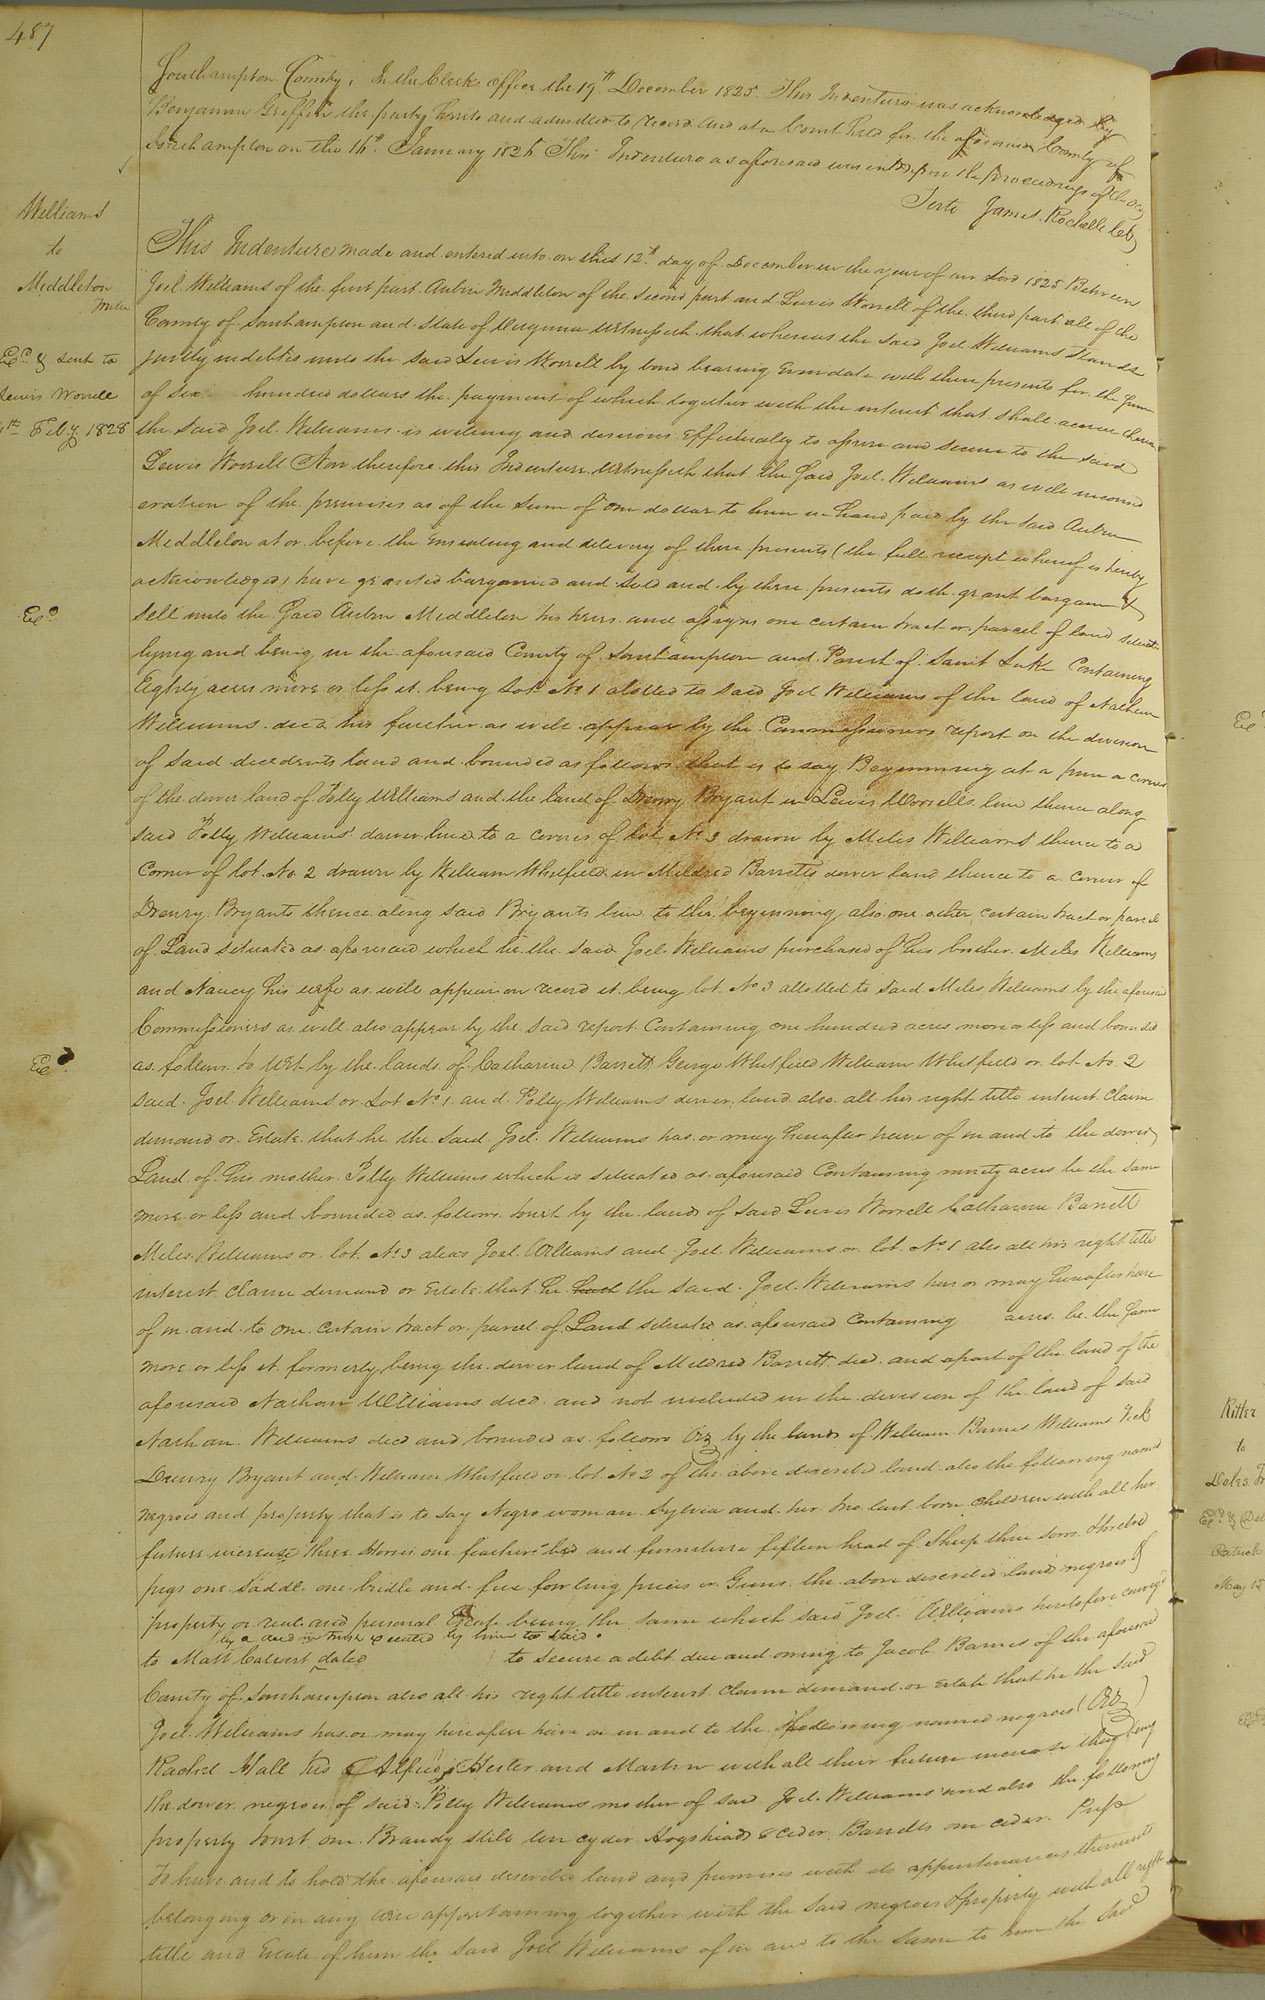 487
Southampton County, In the Clerks office the 19th December 1825. This Indenture was acknowledged by
Benjamin Griffin the party hereto and admitted to record And at a Court held for the aforesaid County of
Southampton on the 16th January 1826 This Indenture as aforesaid was entd upon the proceedings of the day
Teste James Rochelle
Williams
to
Middleton
Exd & sent to
Lewis Worrell
Feby 1828
Exd
Exd
This Indenture made and entered into on this 12th day of December in the year of our Lord 1825 Between
Joel Williams of the first part Middleton of the second part and Lewis Worrell of the third part all of the
County of Southampton and State of Virginia Witnesseth that whereas the said Joel Williams Stands
justly indebted unto the said Lewis Worrell by bond bearing Even date with these presents for the Sum
of Six hundred dollars the payment of which together with the interest that shall accrue thereon
the said Joel Williams is willing and desirous Effectually to assure and secure to the said
Lewis Worrell Now therefore this Indenture Witnesseth that the Said Joel Williams as well in consid
eration of the premises as of the Sum of one dollar to him in hand paid by the said
Middleton at or before the Ensealing and delivery of these presents (the full receipt whereof is hereby
acknowledged) have granted bargained and sold and by these presents doth grant bargain &
Sell unto the Said Middleton his heirs and assigns one certain tract or parcel of land
lying and being in the aforesaid County of Southampton and Parish of Saint Luke Containing
Eighty acres more or less it being Lot No 1 alotted to said Joel Williams of the land of Nathan
Williams decd his further as will appear by the Commissioners report on the division
of said decedents land and bounded as follows that is to say Beginning at a pine a corner
of the dower land of Polly Williams and the land of Drewry Bryant in Lewis Worrells line thence along
said Polly Williams' dower line to a corner of lot No 3 drawn by Miles Williams thence to a
Corner of lot No 2 drawn by William Whitfield in Mildred Barretts dower land thence to a corner of
Drewry Bryants thence along said Bryants line to the beginning, also one other certain tract or parcel
of Land situated as aforesaid which he the said Joel Williams purchased of his brother Miles Williams
and Nancy his wife as will appear on record it being lot No 3 allotted to said Miles Williams by the aforesaid
Commissioners as will also appear by the said report Containing one hundred acres more or less and bounded
as follows to wit by the lands of Catharine Barrett George Whitfield William Whitfield or lot No 2
said Joel Williams or Lot No 1 and Polly Williams dower land also all his right title interest Claim
demand or Estate that he the said Joel Williams has or may hereafter have of in and to the dower
Land of his mother Polly Williams which is situated as aforesaid Containing ninety acres be the same
more or less and bounded as follows towit by the lands of said Lewis Worrell Catharine Barrett
Miles Williams or lot No 3 alias Joel Williams and Joel Williams or lot No 1 also all his right title
interest claim demand or Estate that he the said Joel Williams has or may hereafter have
of in and to one certain tract or parcel of Land situated as aforesaid containing acres be the same
more or less it formerly being the dower land of Mildred Barrett decd and apart of the land of the
aforesaid Nathan Williams decd and not included in the division of the land of said
Nathan Williams decd and bounded as follows Viz by the lands of William Barnes Williams Vick
Drewry Bryant and William Whitfield or lot No 2 of the above described land also the following named
negroes and property that is to say Negro woman Sylvia and her two last born children with all her
future increase three Horses one feather bed and furniture fifteen head of Sheep three sows twelve
pigs one saddle one bridle and five fowling pieces or Guns the above described land negroes &
property or real and personal Estate being the same which said Joel Williams heretofore conveyd
by a deed in trust executed by him to said
to Matt Calvert dated to secure a debt due and owing to Jacob Barnes of the aforesaid
County of Southampton also all his right title interest claim demand or Estate that he the said
Joel Williams has or may hereafter have in and to the following named negroes (Viz)
Rachel Hall Alfred Hester and Martin with all their future increase they being
the dower negroes of said Polly Williams mother of said Joel Williams and also the following
property towit one Brandy Still ten cyder Hogsheads & cider Barrells one cider Press
To have and to hold the aforesaid described land and premises with its appurtenances thereunto
belonging or in any wise appertaining together with the said negroes & property with all right
title and Estate of him the said Joel Williams of in and to the same to him the said
Ritter
to
Patrick
May